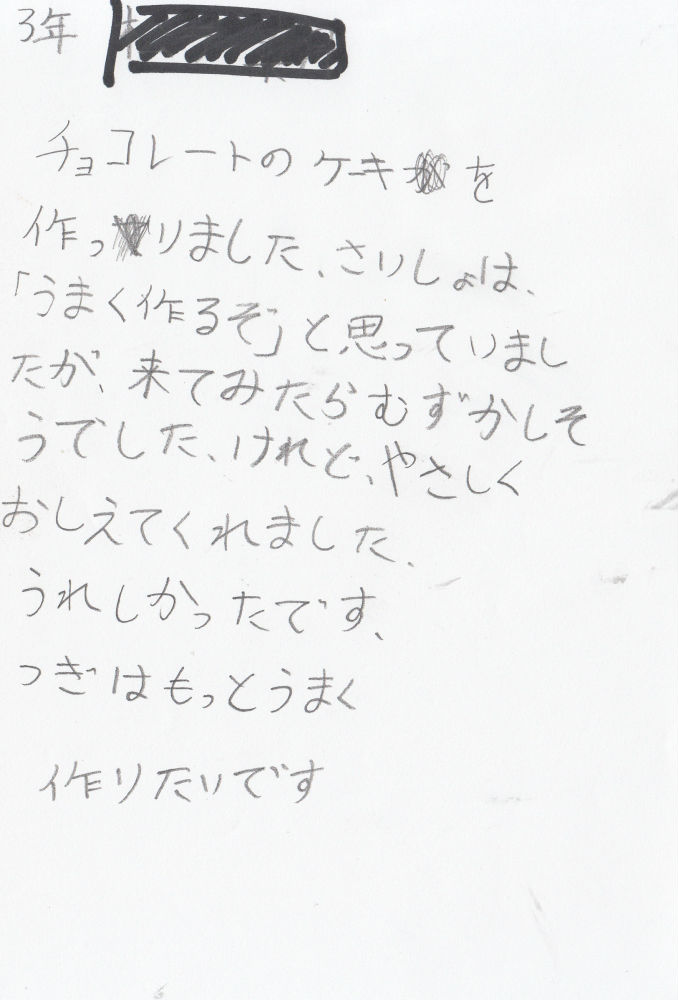 3年
チョコレートのケーキを
作っりました、さいしょは、
「うまく作るぞ」と思っていまし
たが、来てみたらむずかしそ
うでした、けれど、やさしく
おしえてくれました、
うれしかったです、
つぎはもっとうまく
作りたいです